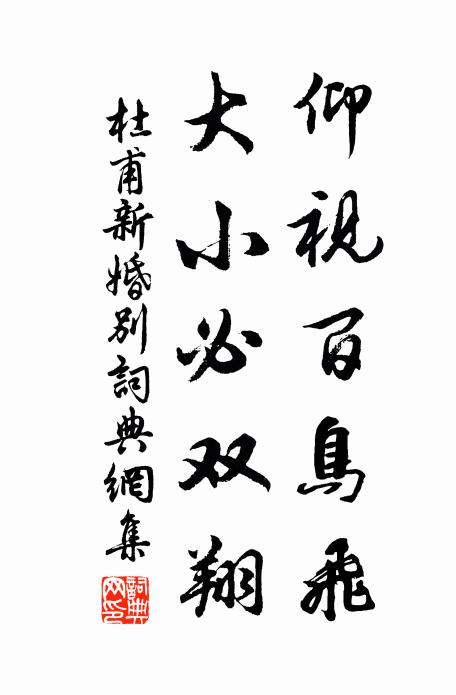 仰視百鳥飛
大小必双翔
杜甫新婚别詞典網集
詞典網印